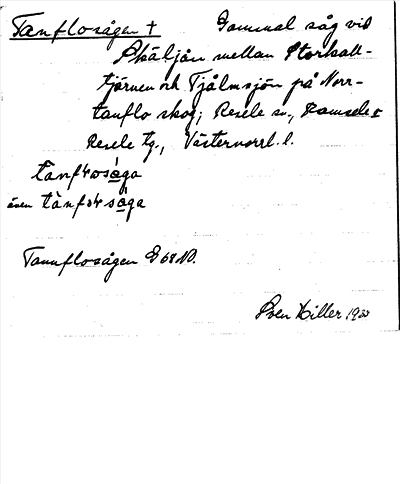 Tanflosågen † Gammal såg vid
Skäljån mellan Storkall-
tjärnen och Tjälmsjön på Norr-
tanflo skog; Resele sn, Ramsele o
Resele tg., Västernorrl. l.
tanf
även tanf
Tannflosågen G 68 NO.
Sven Hiller 1920